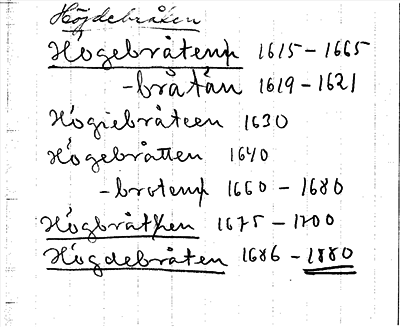 Höjdebråten
Högebråtenn 1615 – 1665
-bråtån 1619 – 1621
Högiebråteen 1630
Högebråtten 1640
-brotenn 1660 – 1680
Högbråthen 1675 – 1700
Högdebråten 1686 – 1880